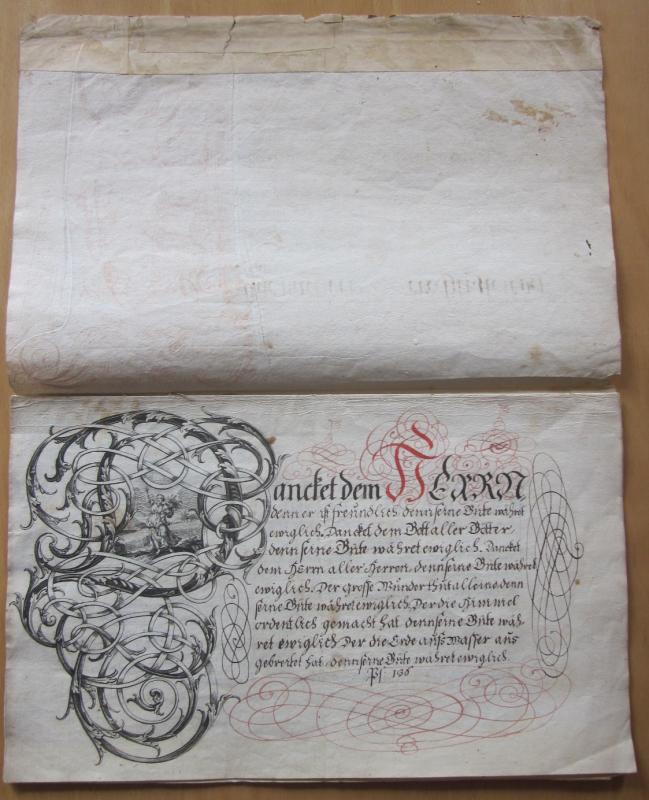 Dancket dem HERRN
denn er ist freundlich denn seine Güte währet
ewiglich. Dancket dem Gott aller Götter,
denn seine Güte währet ewiglich. Dancket
dem Herrn aller Herren, denn seine Güte währet
ewiglich. Der grosse Wunder thut alleine denn
seine Güte währet ewiglich. Der die Himmel
ordentlich gemacht hat denn seine Güte wäh-
ret ewiglich Der die Erde aufs Wasser aus
gebreitet hat, denn seine Güte währet ewiglich.
Ps 136